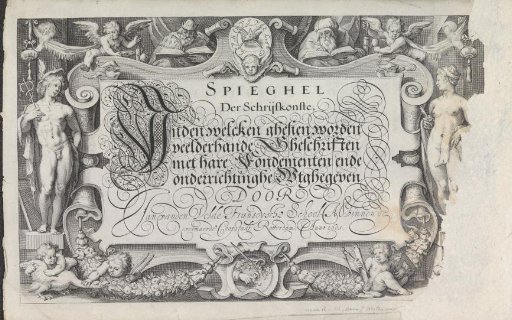 SPIEGHEL
Der Schrijfkonste,
Inden welcken ghesien worden
veelderhande Gheschriften
met hare Fondementen ende
onderrichtinghe. Wtghegeven
DOOR
Jan vanden Velde Fransoysche School Mr. binnen de
vermaerde Coopstadt Rotterdam. Anno 1605.